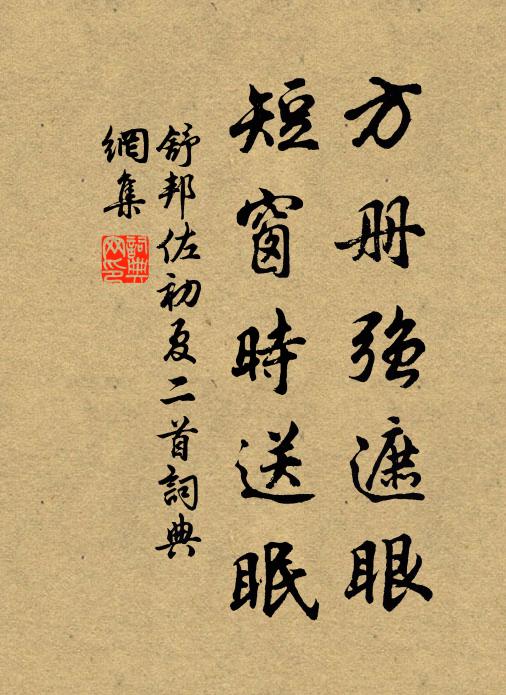 方册強遮眼
短窗時送眠
舒邦佐初夏二首詞典
網集
詞典網印